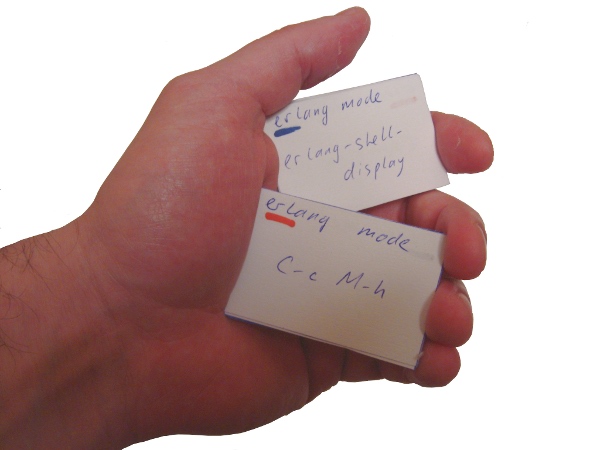 erlang mode
erlang-shell-
display
erlang mode
C-c M-h